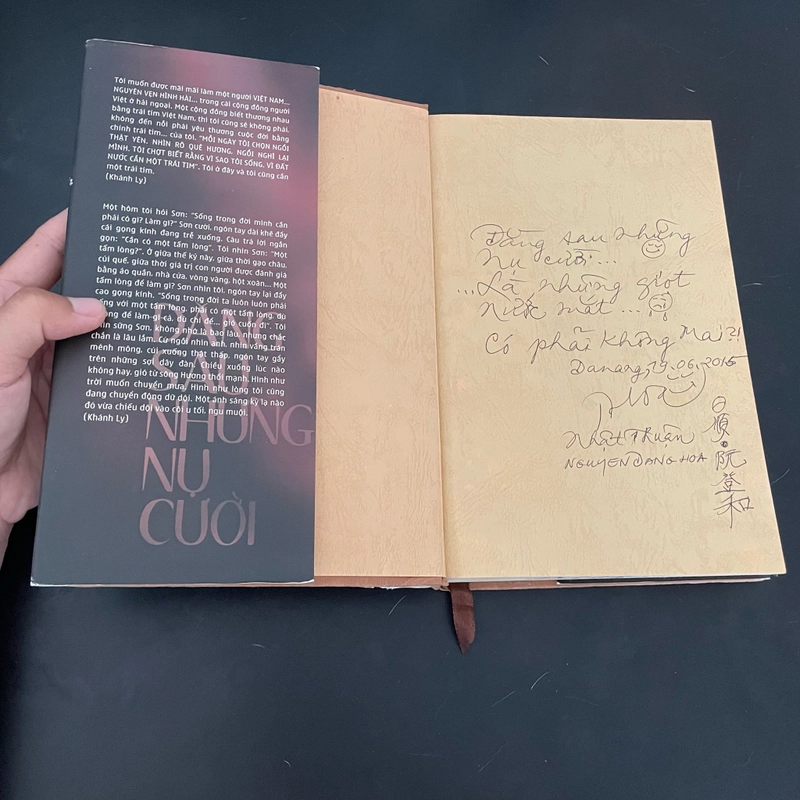 Tôi muốn được mãi mãi làm một người VIỆT NAM...
NGUYÊN VẸN HÌNH HÀI... trong cái cộng đồng người
Việt ở hải ngoại. Một cộng đồng biết thương nhau
bằng trái tim Việt Nam, thì tôi cũng sẽ không phải,
không đến nỗi phải yêu thương cuộc đời bằng
chính trái tim... của tôi. "MỖI NGÀY TÔI CHỌN NGỒI
THẬT YÊN. NHÌN RÕ QUÊ HƯƠNG. NGỒI NGHĨ LẠI
MÌNH. TÔI CHỢT BIẾT RẰNG VÌ SAO TÔI SỐNG. VÌ ĐẤT
NƯỚC CẦN MỘT TRÁI TIM". Tôi ở đây và tôi cũng cần
một trái tim.
(Khánh Ly)
Một hôm tôi hỏi Sơn: "Sống trong đời mình cần
phải có gì? Làm gì?" Sơn cười, ngón tay dài khẽ đẩy
cái gọng kính đang trễ xuống. Câu trả lời ngắn
gọn: "Cần có một tấm lòng". Tôi nhìn Sơn: "Một
tấm lòng?". Ở giữa thế kỷ này, giữa thời gạo châu,
củi quế, giữa thời giá trị con người được đánh giá
bằng áo quần, nhà cửa, vòng vàng, hột xoàn... Một
tấm lòng để làm gì? Sơn nhìn tôi, ngón tay lại đẩy
cao gọng kính. "Sống trong đời ta luôn luôn phải
sống với một tấm lòng... phải một tấm lòng, dù
không để làm gì cả, dù chỉ để... gió cuốn đi". Tôi
nhìn sững Sơn. Không nhớ là bao lâu nhưng chắc
chắn là lâu lắm. Tôi nhìn anh, nhìn vầng trán
mênh mông, cúi xuống thu thập những ngón tay gầy
trên những sợi dây đàn, thấy xuống lúc nào
không hay, gió từ sông Hương thổi mạnh. Hình như
trời muốn chuyển mưa. Hình như lòng tôi cũng
đang chuyển động dữ dội. Một ánh sáng kỳ lạ nào
đó vừa chiếu dội vào cõi u tối, ngu muội.
(Khánh Ly)
ĐẰNG
SAU
NHỮNG
NỤ
CƯỜI
Đằng sau những
nụ cười...
...Là những giọt
nước mắt...
Có phải không Mai?!
Danang, 19.06.2015
Hoà
Nhật Thuận
NGUYEN DANG HOA
日順·阮登和